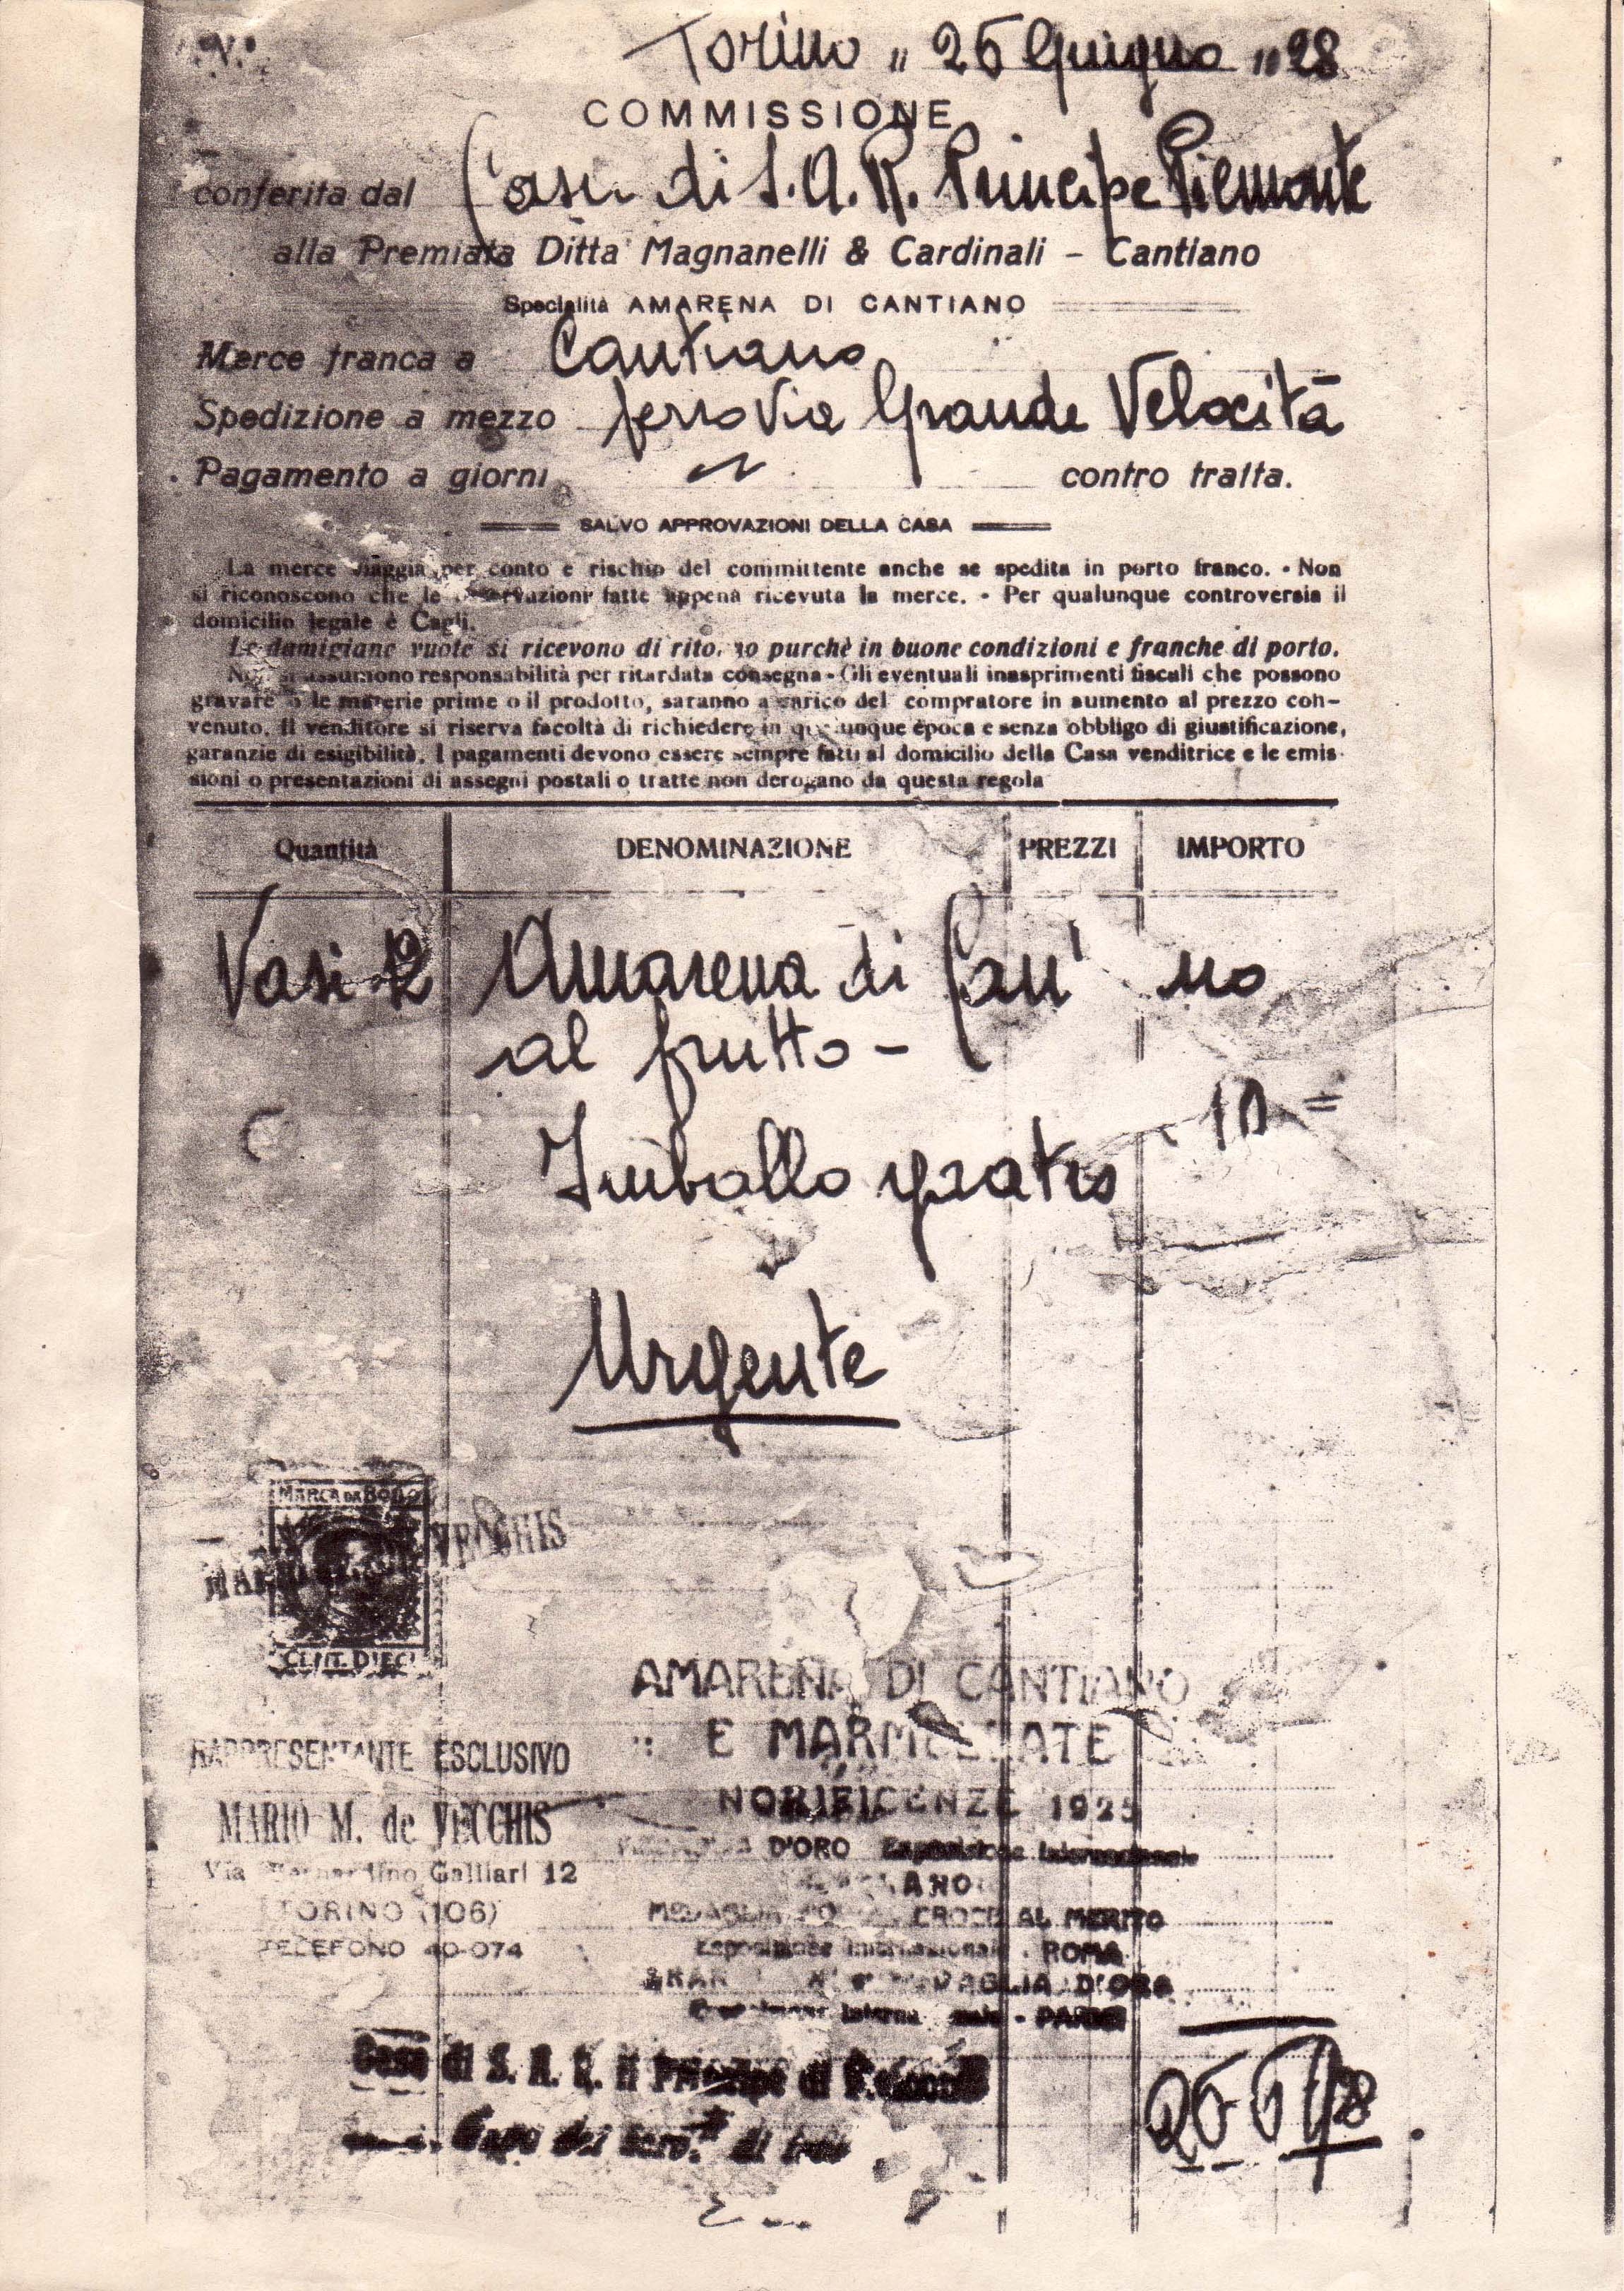 Torino " 26 Giugno " 28
COMMISSIONE
conferita dal Casa di S.A.R. Principe Piemonte
alla Premiata Ditta Magnanelli & Cardinali - Cantiano
Specialità AMARENA DI CANTIANO
Merce franca a Cantiano
Spedizione a mezzo ferrovia Grande Velocità
Pagamento a giorni contro tratta.
SALVO APPROVAZIONI DELLA CASA
La merce viaggia per conto e rischio del committente anche se spedita in porto franco. - Non
si riconoscono che le fatte appena ricevuta la merce. - Per qualunque controversia il
domicilio legale è Cagli.
Le damigiane vuote si ricevono di ritorno purchè in buone condizioni e franche di porto.
Non si assumono responsabilità per ritardata consegna - Gli eventuali inasprimenti fiscali che possono
gravare o le materie prime o il prodotto, saranno a carico del compratore in aumento al prezzo con-
venuto. Il venditore si riserva facoltà di richiedere in qualunque epoca e senza obbligo di giustificazione,
garanzie di esigibilità. I pagamenti devono essere sempre fatti al domicilio della Casa venditrice e le emis-
sioni o presentazioni di assegni postali o tratte non derogano da questa regola
Quantità DENOMINAZIONE PREZZI IMPORTO
Vasi 12 Amarena di Can no
al frutto -
10 =
Imballo gratis
Urgente
MARCA DA BOLLO
VECCHIS
CENT. DIECI
AMARENA DI CANTIANO
E MARMELLATE
RAPPRESENTANTE ESCLUSIVO
MARIO M. de VECCHIS
NORIFICENZE 1925
D'ORO Esposizione Internazionale
Via Bernardino Galliari 12
TORINO (106)
MEDAGLIA CROCE AL MERITO
TELEFONO 40-074
Esposizione Internazionale - ROMA
MEDAGLIA D'ORO
- PARIGI
Casa di S. A. R. il Principe di Piemonte
Capo dei